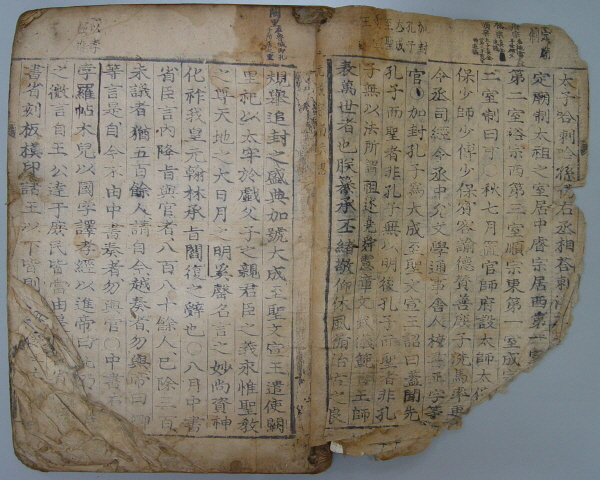 太子哈剌哈孫爲右丞相答剌
定廟制太祖之室居中睿宗居西第一室
第二室裕宗西第三室順宗東第一室成宗
二室制曰可○秋七月置官師府設太師太傅
保少師少傅少保賓客諭德贊善庶子洗馬率更
令丞司經令丞中允文學通事舍人校書正字等
官○加封孔子爲大成至聖文宣王詔曰蓋聞先
孔子而聖者非孔子無以明後孔子而聖者非孔
子無以法所謂祖述堯舜憲章文武儀範百王師
表萬世者也朕纂承丕緖敬仰休風循治古之良
加封孔子大成至聖王
規擧追封之盛典加號大成至聖文宣王遣使闕
里祀以太牢於戲父子之親君臣之義永惟聖敎
之尊天地之大日月之明奚罄名言之妙尙資神
化祚我皇元翰林承旨閻復之辭也○八月中書
省臣言內降旨與官者八百八十餘人已除三百
未議者猶五百餘人請自今越奏者勿與帝曰卿
等言是自今不由中書奏者勿與官○中書右
孛羅帖木兒以國字譯孝經以進帝曰此乃
之微言自王公達于庶民皆當由是
書省刻板模印諸王以下皆